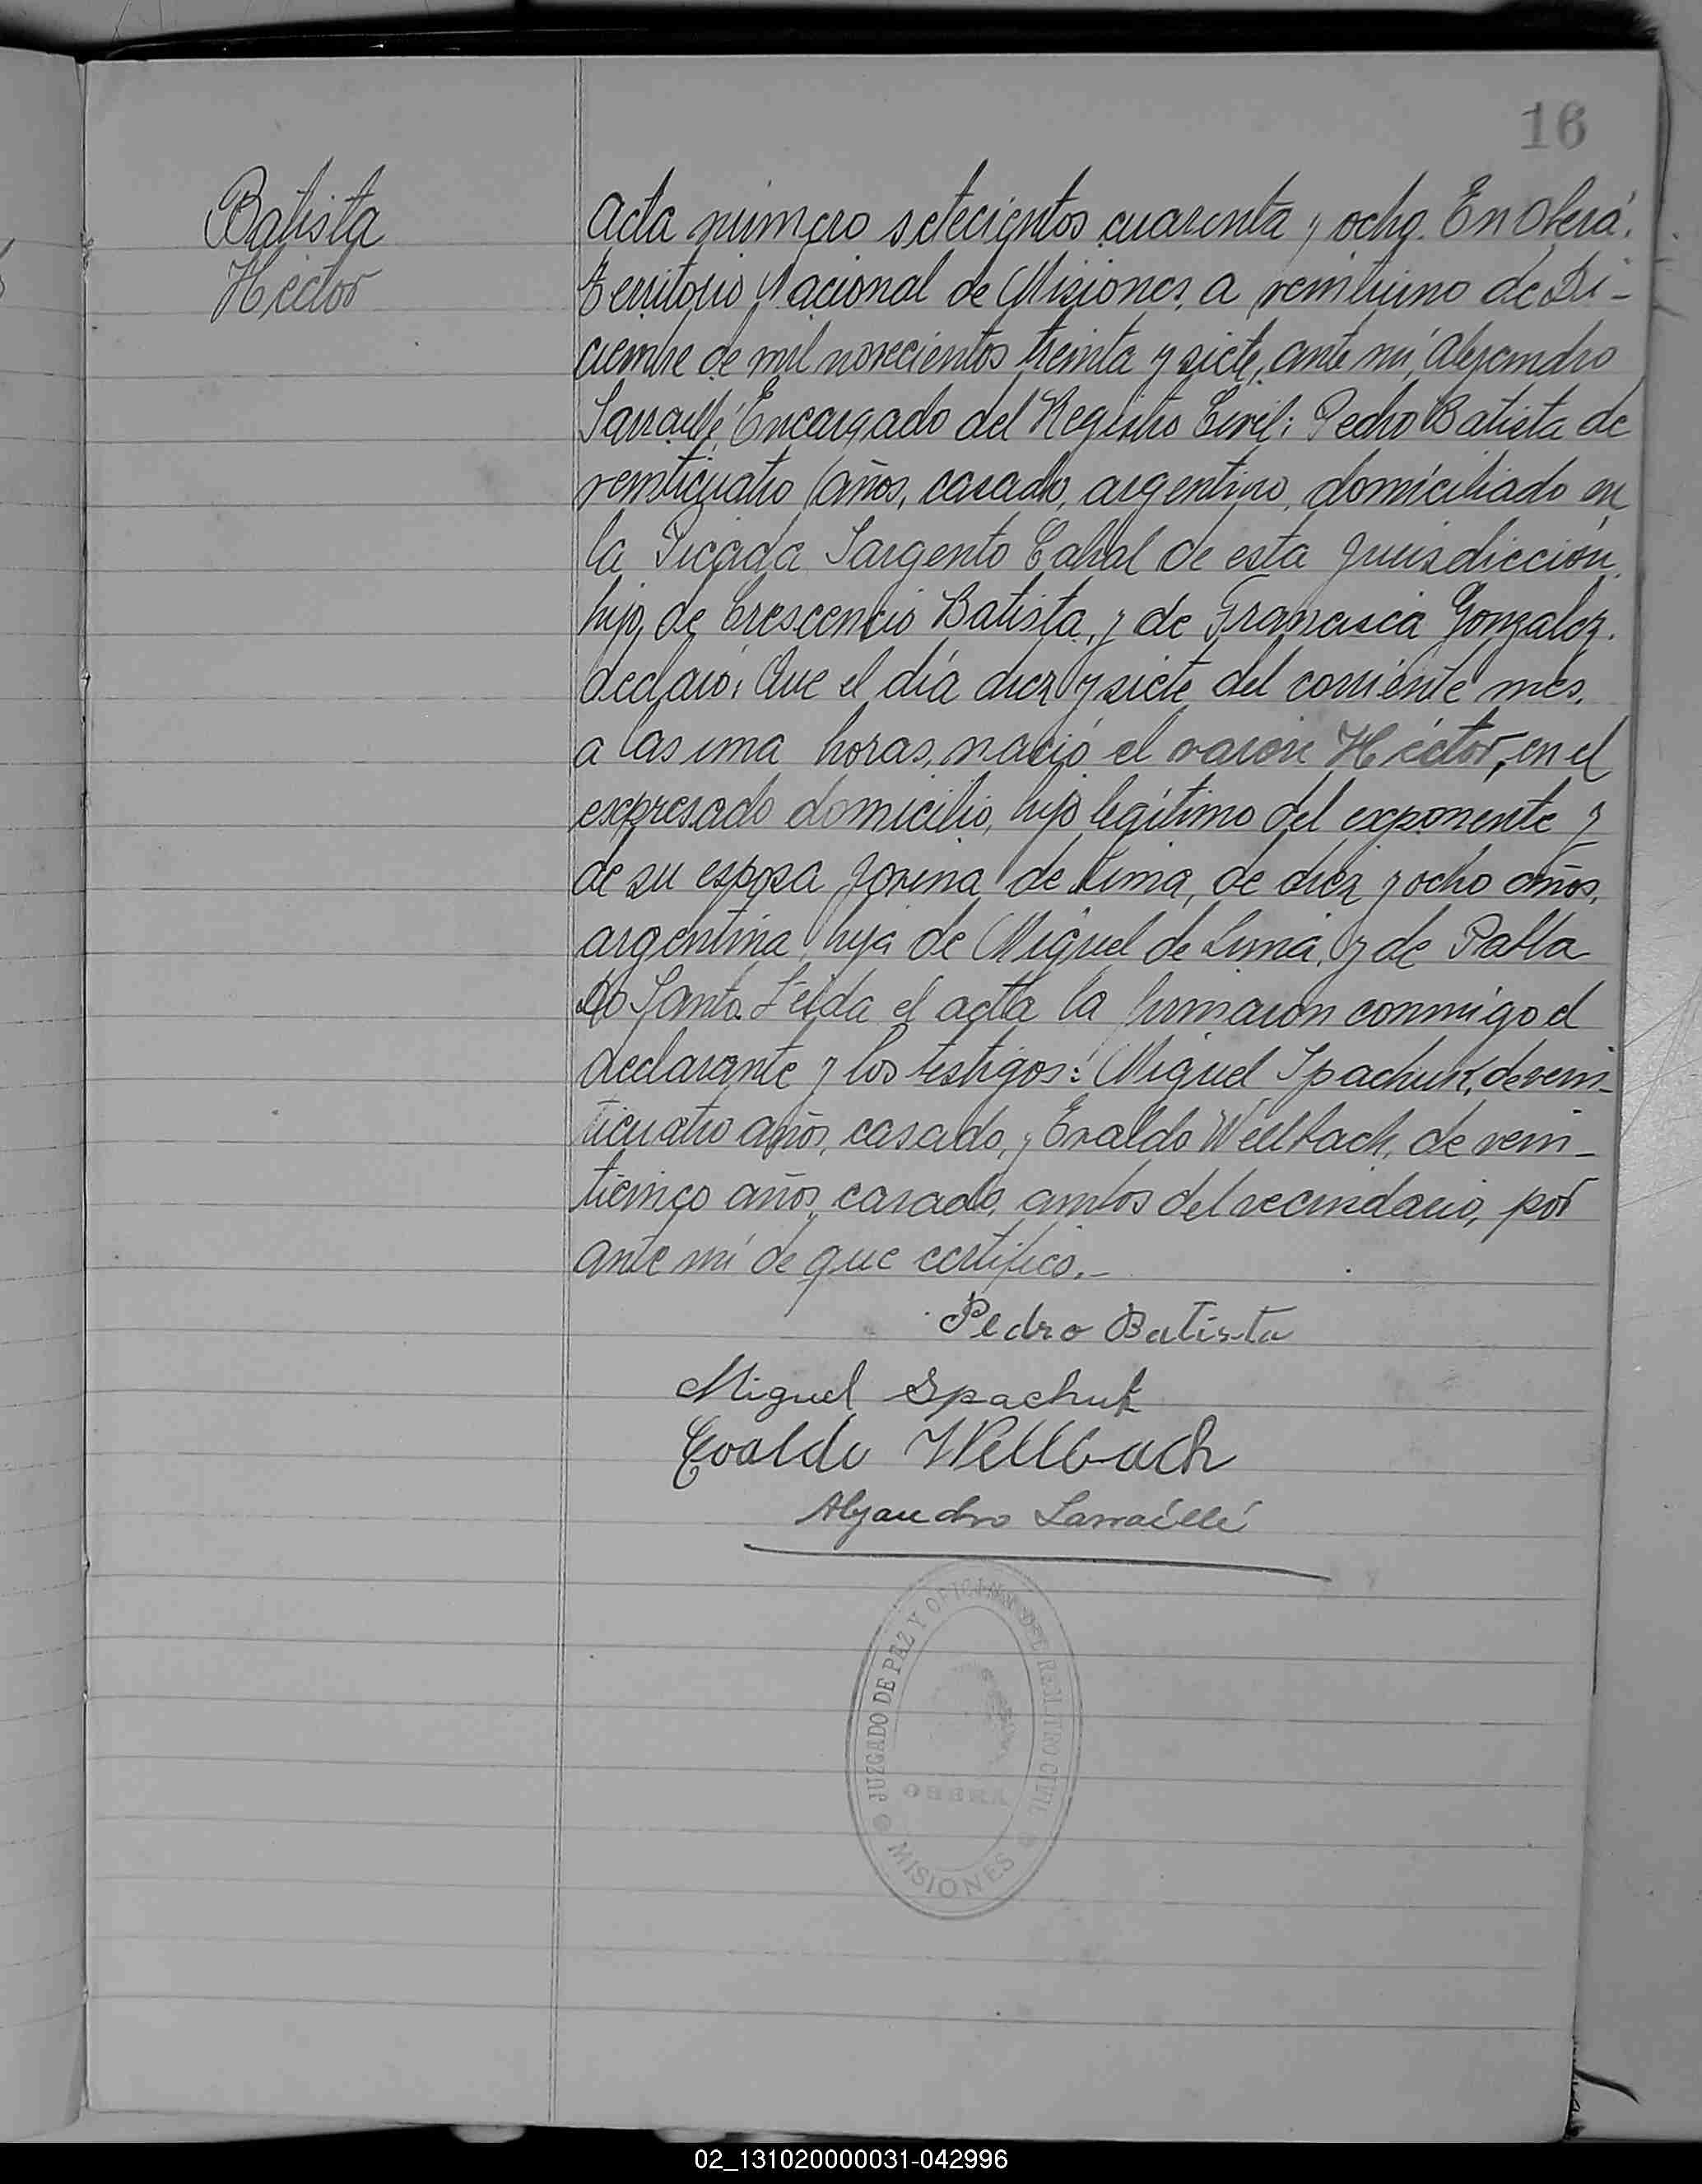 16
Batista
Héctor
Acta número setecientos cuarenta y ocho. En Oberá.
Territorio Nacional de Misiones, a veintiuno de Di-
ciembre de mil novecientos treinta y siete, ante mí, Alejandro
Larraillé, Encargado del Registro Civil: Pedro Batista de
veinticuatro años, casado, argentino, domiciliado en
la Picada Sargento Cabral de esta jurisdicción,
hijo de Crescencio Batista, y de Francisca Gonzalez.
declaró: Que el día diez y siete del corriente mes,
a las una horas, nació el varón Héctor, en el
expresado domicilio, hijo legítimo del exponente y
de su esposa Jovina de Lima, de diez y ocho años,
argentina, hija de Miguel de Lima, y de Pabla
do Santo. Leída el acta la firmaron conmigo el
declarante y los testigos: Miguel Spachuk, de vein-
ticuatro años, casado, y Evaldo Wellbach, de vein-
ticinco años, casado, ambos del vecindario, por
ante mí de que certifico.-
Pedro Batista
Miguel Spachuk
Evaldo Wellbach
Alejandro Larraillé
JUZGADO DE PAZ Y OFICINA DEL REGISTRO CIVIL
OBERA
MISIONES
02_131020000031-042996